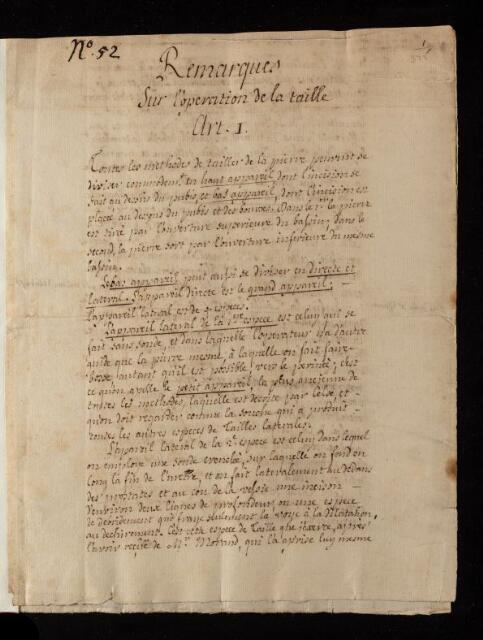 N.º 52
Remarques
Sur l'operation de la taille
Art. 1.
Toutes les methodes de tailler de la pierre peuvent se
diviser en haut appareil dont l'incision se
fait au dessus du pubis, et bas appareil, dont l'incision est
placée au dessous du pubis et des bourses. Dans le 1.r la pierre
est tiré par l'ouverture superieure du bassin; dans le
second, la pierre sort par l'ouverture inferieure du mesme
bassin.
Le bas appareil peut aussi se diviser en directe et
lateral. L'appareil directe est le grand appareil;
l'appareil lateral est de 4 especes.
L'appareil lateral de la 1.re espece est celuy qui se
fait sans sonde, et dans laquelle l'operateur n'a d'autre
guide que la pierre mesme, à laquelle on fait faire
bosse, autant qu'il est possible, vers le perinée; c'est
ce qu'on apelle le petit appareil, la plus ancienne de
toutes les methodes, laquelle est decrite par Celse, et
qu'on doit regarder comme la souche qui a produit
toutes les autres especes de Tailles laterales.
L'appareil lateral de la 2.e espece est celuy dans lequel
on employe une sonde, sur laquelle on fend en
long la fin de l'uretre, et on fait lateralement au dedans
des prostates et au cou de la vessie une incision
d'environ deux lignes de profondeur, ou une espece
de qui fraye seulement la voye à la dilatation,
au dechirement. C'est cette espece de Taille que j'exerce, après
l'avoir de M.r, qui l'a aprise luy mesme